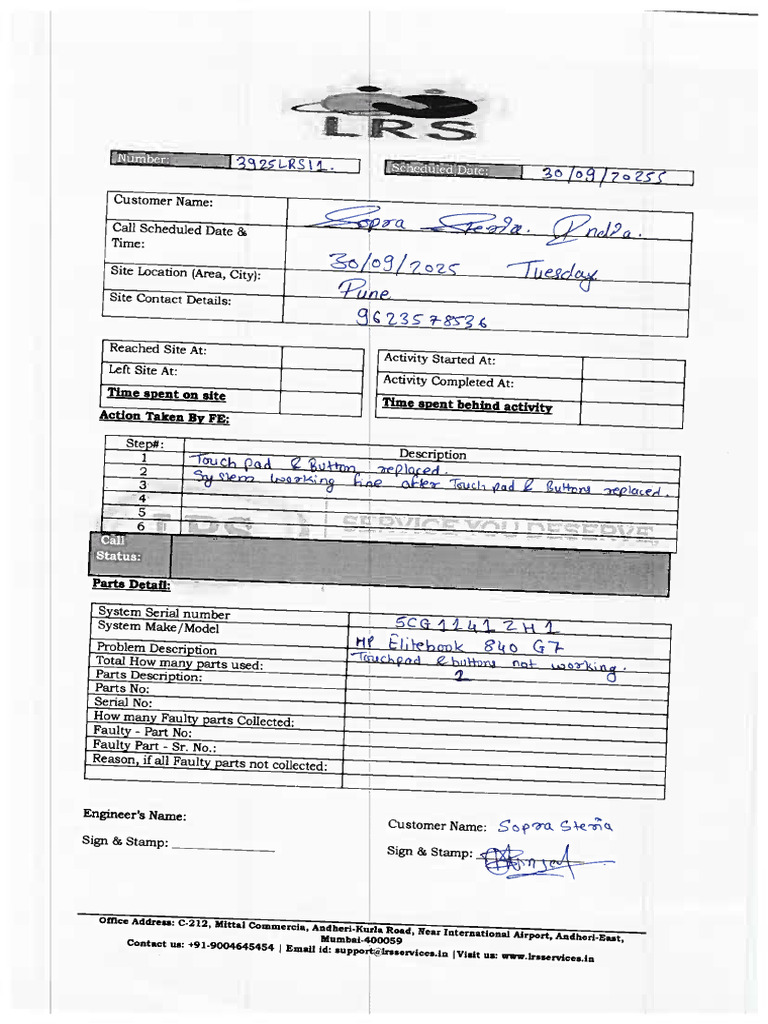 LRS
Number: 3925LRS11.
Scheduled Date: 30/09/20255
Customer Name: Sopra Steria India.
Call Scheduled Date & Time: 30/09/2025 Tuesday
Site Location (Area, City): Pune
Site Contact Details: 9623578536
Reached Site At:
Left Site At:
Time spent on site
Activity Started At:
Activity Completed At:
Time spent behind activity
Action Taken By FE:
Step#: Description
1 Touch pad & Button replaced.
2 System working fine after Touch pad & Buttons replaced.
3
4
5
6
LRS | SERVICE YOU DESERVE.
Call Status:
Parts Detail:
System Serial number 5CG11412H1
System Make/Model HP Elitebook 840 G7
Problem Description Touchpad & buttons not working.
Total How many parts used: 2
Parts Description:
Parts No:
Serial No:
How many Faulty parts Collected:
Faulty - Part No:
Faulty Part - Sr. No.:
Reason, if all Faulty parts not collected:
Engineer's Name:
Sign & Stamp:
Customer Name: Sopra Steria
Sign & Stamp:
Office Address: C-212, Mittal Commercia, Andheri-Kurla Road, Near International Airport, Andheri-East,
Mumbai-400059
Contact us: +91-9004645454 | Email id: support@lrsservices.in |Visit us: www.lrsservices.in